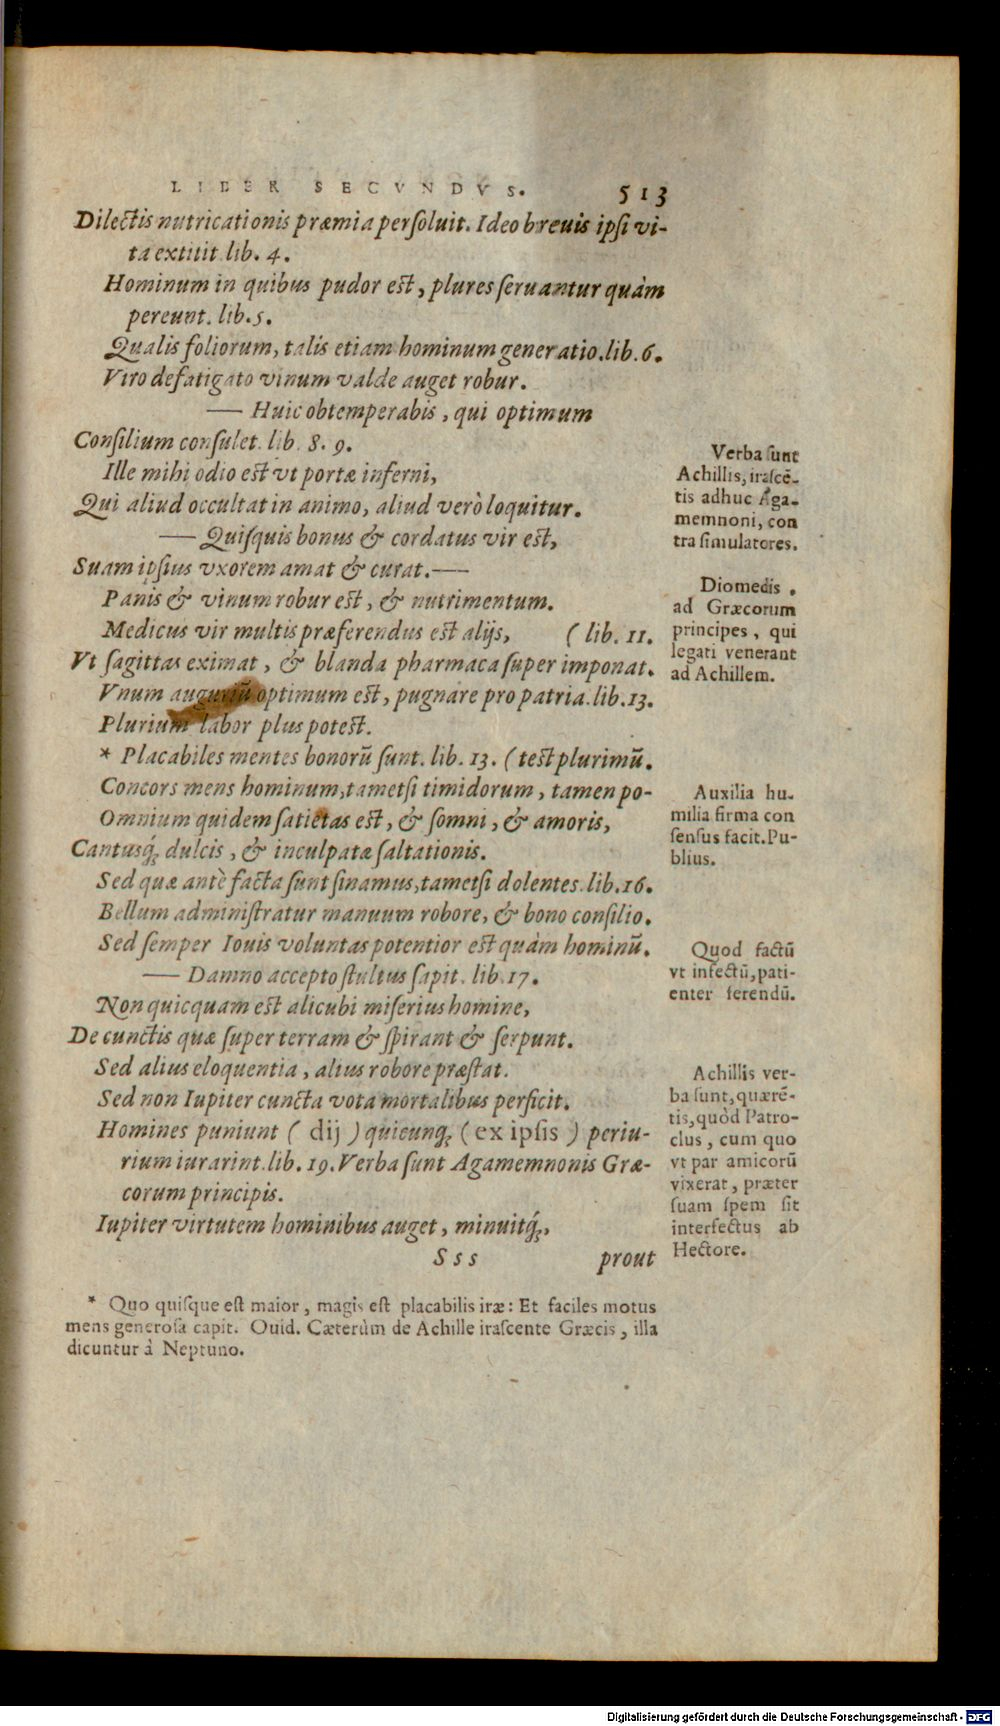 LIBER SECVNDVS. 513
Dilectis nutricationis præmia perſoluit. Ideo breuis ipſi vi-
ta extitit lib. 4.
Hominum in quibus pudor eſt, plures ſeruantur quàm
pereunt. lib. 5.
Qualis foliorum, talis etiam hominum generatio. lib. 6.
Viro defatigato vinum valde auget robur.
— Huic obtemperabis, qui optimum
Conſilium conſulet. lib. 8. 9.
Ille mihi odio eſt vt portæ inferni,
Qui aliud occultat in animo, aliud verò loquitur.
— Quiſquis bonus & cordatus vir eſt,
Suam ipſius vxorem amat & curat.—
Panis & vinum robur eſt, & nutrimentum.
Medicus vir multis præferendus eſt alijs, ( lib. 11.
Vt ſagittas eximat, & blanda pharmaca ſuper imponat.
Vnum auguriū optimum eſt, pugnare pro patria. lib. 13.
Plurium labor plus poteſt.
* Placabiles mentes bonorū ſunt. lib. 13. ( teſt plurimū.
Concors mens hominum, tametſi timidorum, tamen po-
Omnium quidem ſatietas eſt, & ſomni, & amoris,
Cantusq́; dulcis, & inculpatæ ſaltationis.
Sed quæ antè facta ſunt ſinamus, tametſi dolentes. lib. 16.
Bellum adminiſtratur manuum robore, & bono conſilio.
Sed ſemper Iouis voluntas potentior eſt quàm hominū.
— Damno accepto ſtultus ſapit. lib. 17.
Non quicquam eſt alicubi miſerius homine,
De cunctis quæ ſuper terram & ſpirant & ſerpunt.
Sed alius eloquentia, alius robore præſtat.
Sed non Iupiter cuncta vota mortalibus perficit.
Homines puniunt ( dij ) quicunq; ( ex ipſis ) periu-
rium iurarint. lib. 19. Verba ſunt Agamemnonis Græ-
corum principis.
Iupiter virtutem hominibus auget, minuitq́;,
Sss prout
Verba ſunt
Achillis, iraſcē-
tis adhuc Aga-
memnoni, con
tra ſimulatores.
Diomedis
ad Græcorum
principes, qui
legati venerant
ad Achillem.
Auxilia hu-
milia firma con
ſenſus facit. Pu-
blius.
Quod factū
vt infectū, pati-
enter ferendū.
Achillis ver-
ba ſunt, quærē-
tis, quòd Patro-
clus, cum quo
vt par amicorū
vixerat, præter
ſuam ſpem ſit
interfectus ab
Hectore.
* Quo quiſque eſt maior, magis eſt placabilis iræ: Et faciles motus
mens generoſa capit. Ouid. Cæterùm de Achille iraſcente Græcis, illa
dicuntur à Neptuno.
Digitalisierung gefördert durch die Deutsche Forschungsgemeinschaft - DFG